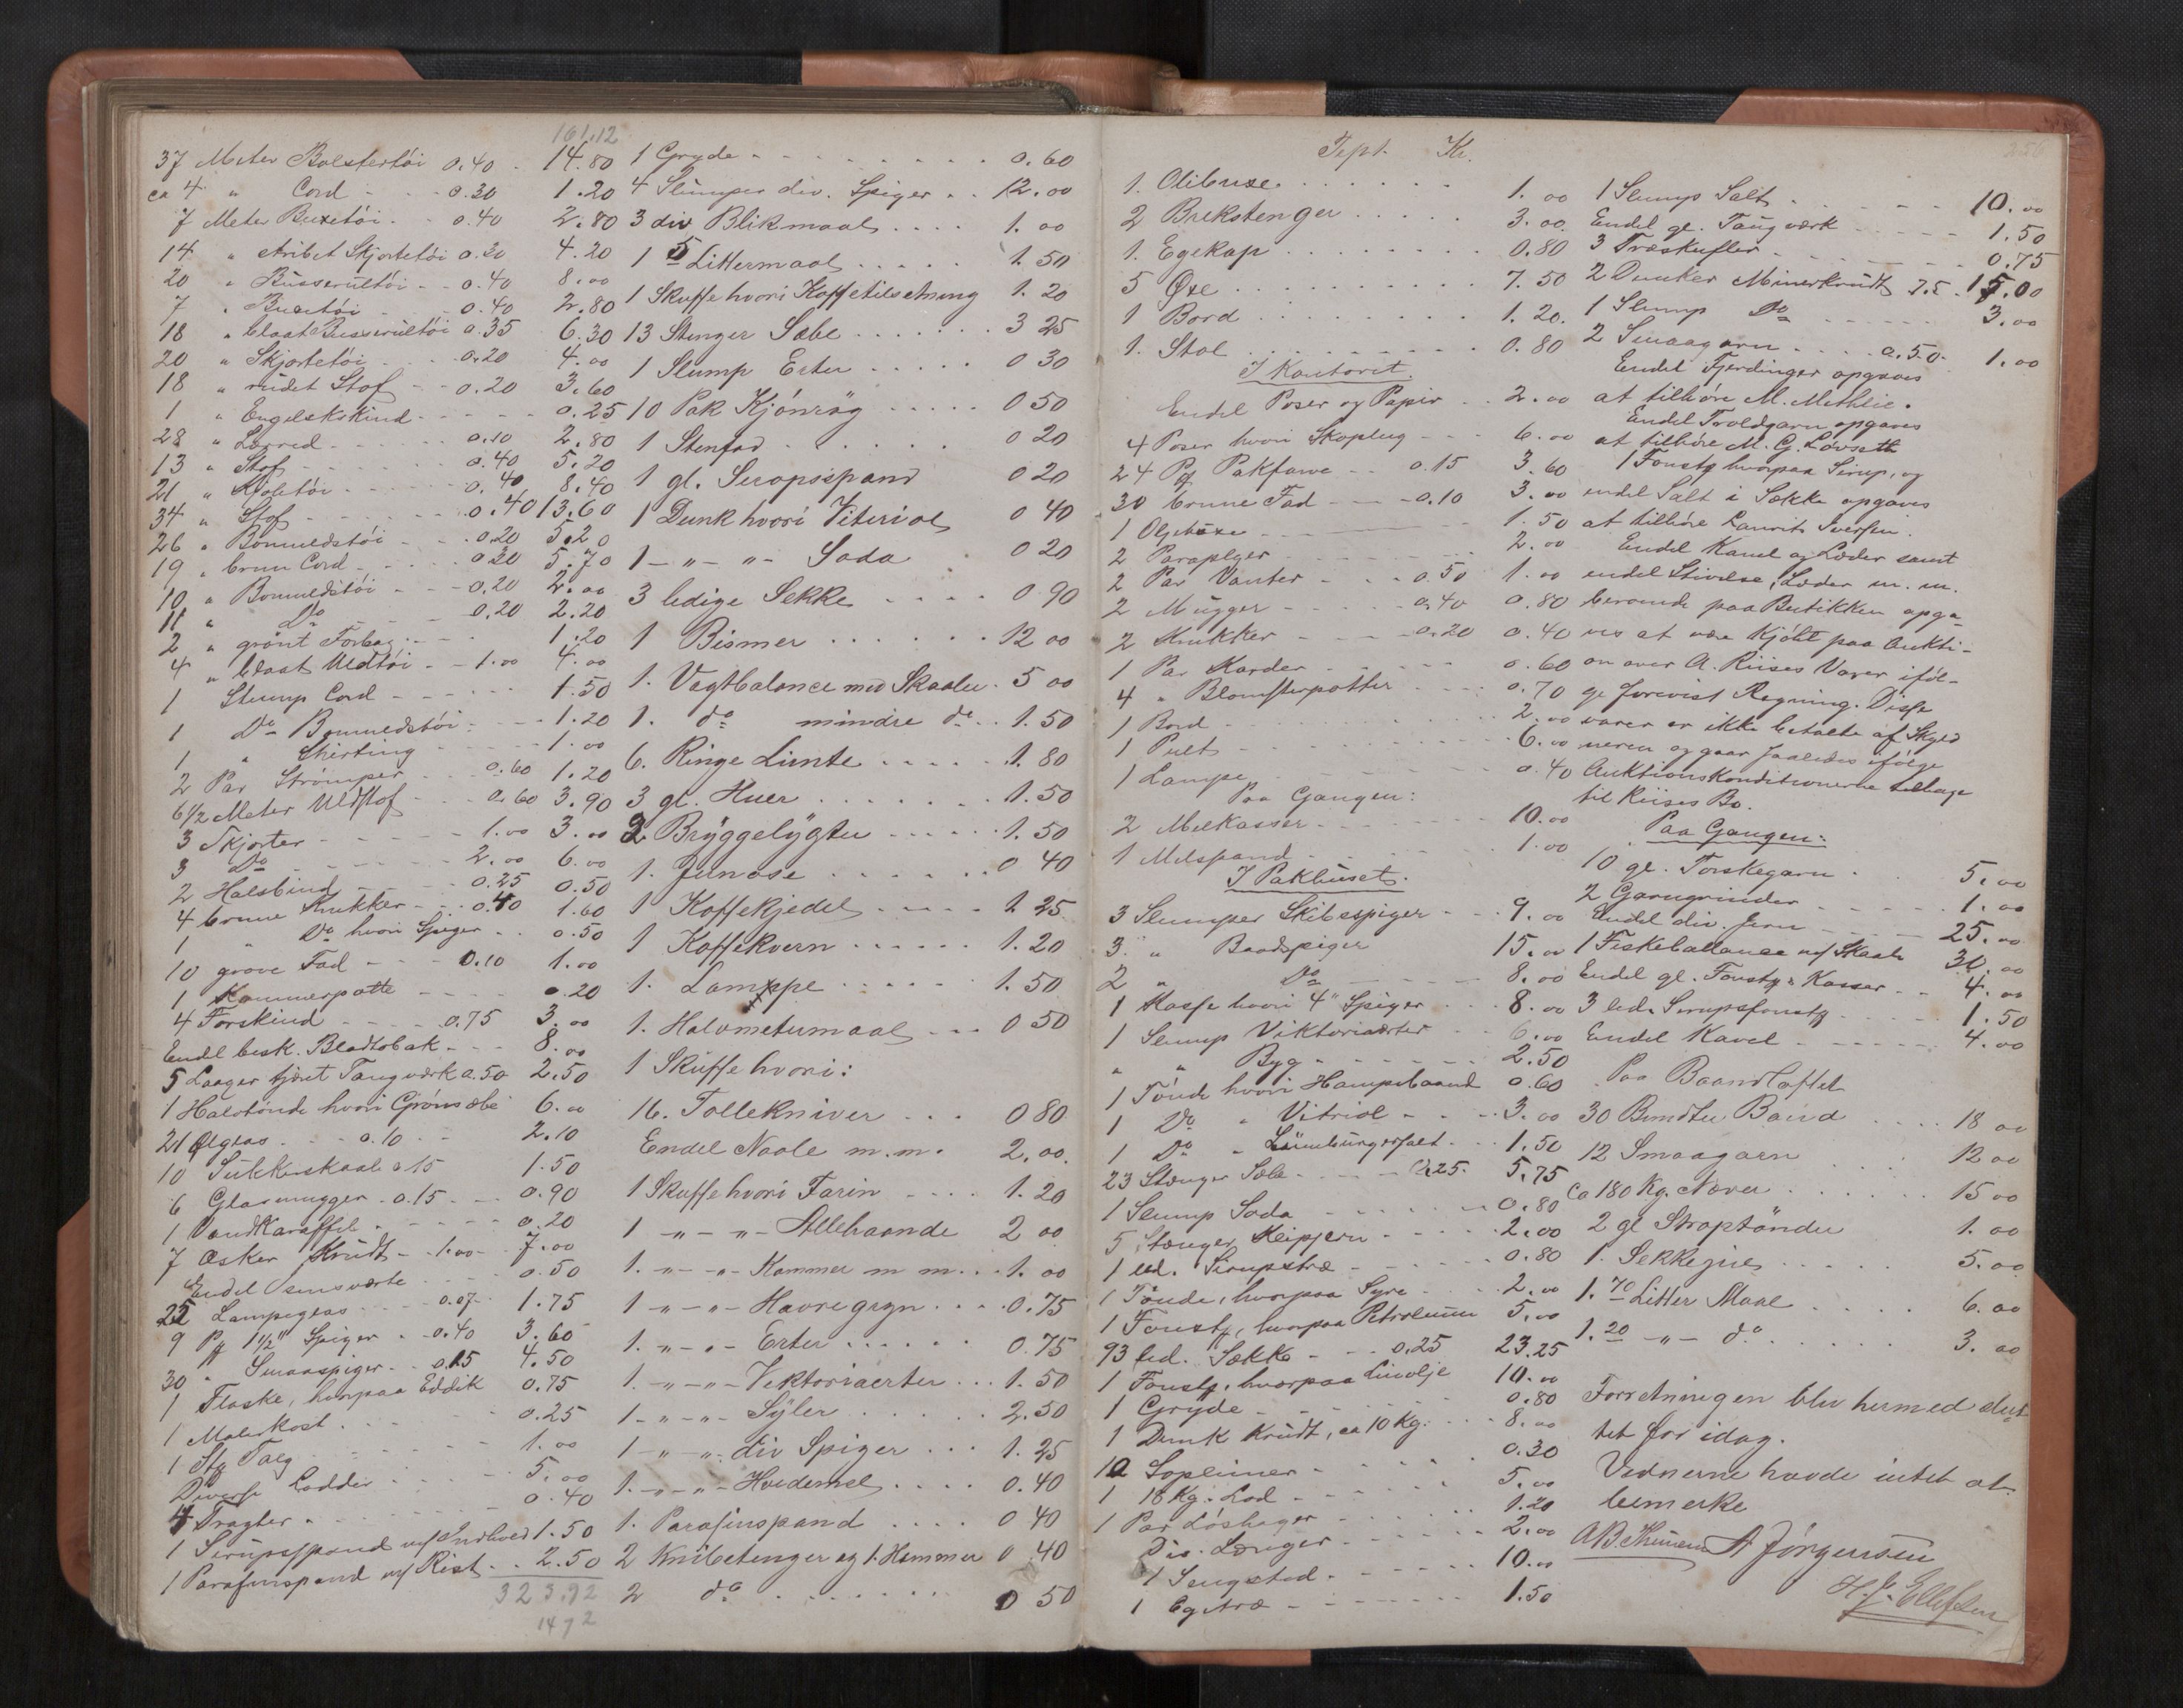 161.12
37 Meter Bolstertöi 0.40 - 14.80
ca 4 " Cord - - - 0.30 1.20
7 Meter Buxetöi - - 0.40 2.80
14 " stribet Skjortetöi 0.30 4.20
20 " Busserultöi - - 0.40 8.00
7 " Buxetöi - - 0.40 2.80
18 " blaat Busserultöi 0.35 6.30
20 " Skjortetöi - - - 0.20 4.00
18 " rudet Stof - - 0.20 3.60
1 " Engelskskind - - - - - 0.25
28 " Lærred - - - - 0.10 2.80
13 " Stof - - - - 0.40 5.20
21 " Kjoletöi - - - 0.40 8.40
34 " Stof - - - - 0.40 13.60
26 " Bomuldstöi - - 0.20 5.20
19 " brun Cord - - - 0.30 5.70
10 " Bomuldstöi - - - 0.20 2.00
11 " Do - 0.20 2.20
2 " grönt Forlag - - 1.20
4 " blaat Uldtöi - - 1.00 4.00
1 Slump Cord - - - - - 1.50
1 Do Bomuldstöi - - - 1.20
1 " Shirting - - - - 1.00
2 Par Strømper - - 0.60 1.20
6 1/2 Meter Uldstof - - 0.60 3.90
3 Skjorter - - - 1.00 3.00
3 Do - - - - 2.00 6.00
2 Halsbind - - - 0.25 0.50
4 brune Krukker - - 0.40 1.60
1 " Do hvori Spiger - - 0.50
10 grove Fad - - - 0.10 1.00
1 Kammerpotte - - - - 0.20
4 Forskind - - - - 0.75 3.00
Endel besk. Bladtobak - - - 8.00
5 Laager tjæret Taugværk a.50 2.50
1 Halvtönde hvori Grönsæbe 6.00
21 Ølglas - - - 0.10 - - 2.10
10 Sukkerskaale 0.15 1.50
6 Glasmugger - 0.15 - - 0.90
1 Vandkaraffel - - - - - 0.20
7 Æsker Krudt - - 1.00 - 7.00
Endel - - - 0.50
25 Lampeglas - - - 0.07 - 1.75
9 Pk 1 1/2" Spiger - - 0.40 3.60
30 " Smaaspiger - - 0.15 4.50
1 Flaske, hvorpaa Eddik 0.75
1 Malerkost - - - - 0.25
1 Stk Talg - - - - - 1.00
Diverse Lodder - - - - 5.00
4 Tragter - - - - - 0.40
1 Sirupsspand m/ Indhold 1.50
1 Parafinspand m/ Rist - - 2.50
323.92
1472
1 Gryde - - - - - - - - 0.60
4 Slumper div. Spiger - - 12.00
3 div Blikmaal - - - - 1.00
1 5 Littermaal - - - - - 1.50
1 Skuffe hvori Kaffetilsetning 1.20
13 Stenger Sæbe - - - - - - 3 25
1 Slump Erter - - - - - 0 30
10 Pak Kjönrög - - - - - 0 50
1 Stenfad - - - - - - 0 20
1 gl. Siropsspand 0 20
1 Dunk hvori Viteriol 0 40
1 - " - " - Soda - 0 20
3 ledige Sekke - - - - 0 90
1 Bismer - - - - - - 12 00
1. Vægtbalance med Skaaler - 5 00
1. do mindre do - - 1.50
6. Ringe Lunte - - - - - 1.80
3 gl. Huer - - - - - - 1.50
2 Bryggelygter - - - - - - 1.50
1. - - - - - - 0 40
1 Kaffekjedel - - - - 1 25
1 Kaffekvern - - - - - - 1.20
1. Lampe - - - - - 1.50
1. Halvmetermaal - - - 0 50
1 Skuffe hvori:
16. Tollekniver - - 0 80
Endel Naale m.m. 2.00.
1 Skuffe hvori Farin - - - - 1.20
1 - " - " - Allehaande 2 00
1. - " - " - Kammer m m - - 1.00
1 - " - " - Havregryn - - - 0.75
1. - " - " - Erter - - - - - 0.75
1. - " - " - Viktoriaerter - - - 1.50
1 - " - " - Syler - - - - - 2.50
1 - " - " - div Spiger - - - 1.25
1. - " - " - Hvedemel - - - - 0.40
1. Parafinspand - - - - 0 40
2 Knibetenger og 1. Hammer 0.40
2 do - - - - - - - - 0 50
Tept. Kr.
1. Olibuxe - - - - - - 1.00
2 Brekstenger - - - - - 3.00
1. Egekap - - - - - - - 0.80
5 Øxe - - - - - - - - 7.50
1 Bord - - - - - - - - 1.20.
1. Stol - - - - - - - - - 0.80
I Kontoret.
Endel Poser og Papir - - 2.00
4 Poser hvori Skoplug - - - 6.00
24 Pk Pakfarve - - 0.15 3.60
30 brune Fad - - - - 0.10 3.00
1 Oljebuxe - - - 1.50
2 Paraplyer - - - - - - 2.00
2 Par Vanter - - - 0.50 1.00
2 Mugger - - - - - 0.40 0.80
2 Krukker - - - - 0.20 0.40
1 Par Karder - - - - - 0.60
4 " Blomsterpotter - - - - 0.70
1 Bord - - - - - - - - - 2.00
1 Pult - - - - - - - - 6.00
1 Lampe - - - - - - 0.40
Paa Gangen:
2 Melkasser - - - - - - - 10.00
1 Melspand - - - - - - - 1.00
I Pakhuset.
3 Slumper Skibsspiger - - - 9.00
3. " Baadspiger 15.00
2 " Do - - - - - 8.00
1 Kasse hvori 4" Spiger - - - 8.00
1 Slump Viktoriaerter - - 6.00
" " Byg - - - - - - 2.50
1 Tönde hvori Hampebaand 0.60
1 Do " Vitriol - - - - 3.00
1 Do " Lüneburgersalt - - - 1.50
23 Stænger Sæbe - - - - 0.25. 5.75
1 Slump Soda - - - - - - 0.80
5 Stænger Keipjern - - - - 2.00
1 led. Sirupstræ - - - - - 0.80
1 Tönde, hvorpaa Syre - - - - 2.00
1 Foustg, hvorpaa Petroleum 5.00
93 led. Sække - - - 0.25 23.25
1 Foustg, hvorpaa Linolje 10.00
1 Gryde - - - - - - - 0.80
1 Dunk Krudt, ca 10 Kg. - - - 8.00
10 - - - - - 0.30
1 18 Kg. Lod - - - - - 5.00
1 Par - - - - - 1.20
Div. Længer - - - - - - 2.00
1 Sengsted - - - - - - 10.00
1 Egetræ - - - - - - - 1.50
1 Slump Salt - - - - - - 10.00
Endel gl. Taugværk - - - - - 1.50
3 Træskufler - - - - - - - 0.75
2 Dunker Minerkrudt 7.5 - 15.00
1 Slump Do - - - - - - 3.00
2 Smaagarn - - - - a.50 - 1.00
Endel Fjerdinger opgaves
at tilhöre M. Methlie.
Endel Troldgarn opgaves
at tilhöre M. G. Lövseth
1 Foustg hvorpaa Sirup, og
endel Salt i Sække opgaves
at tilhöre Laurits Iversen.
Endel Kanel og Læder samt
endel Stivelse, Læder m. m.
beroende paa Butikken opga-
ves at være Kjöbt paa Aukti-
on over A. Riises Varer iföl-
ge forevist Regning. Disse
varer er ikke betalte af Skyld
neren og gaar saaledes ifölge
Auktionskonditionerne tilbage
til Riises Bo.
Paa Gangen:
10 gl. Torskegarn - - 5.00
2 Garngrinder - - - - - 1.00
Endel div. Jern - - - - 25.00
1 Fiskeballance m/ Skaale 30.00
Endel gl. Foustg & Kasser - - 4.00
3 led. Sirupsfoustg - - - - - 1.50
Endel Kavel - - - - - - 4.00
Paa Baandloftet
30 Bundter Baand - - - - 18 00
12 Smaagarn 12 00
Ca 180 Kg. Næver - - - - - - 15 00
2 gl Straptönder 1.00
1. Sekkegie - - - - - 5.00
1. 70 Litter Maal - - - - - 6.00
1. 20 - " - do - - - - - - 3.00
Forretningen blev hermed slut
tet for idag.
Vidnerne havde intet at
bemerke
A Jörgensen
H. J. Ellefsen